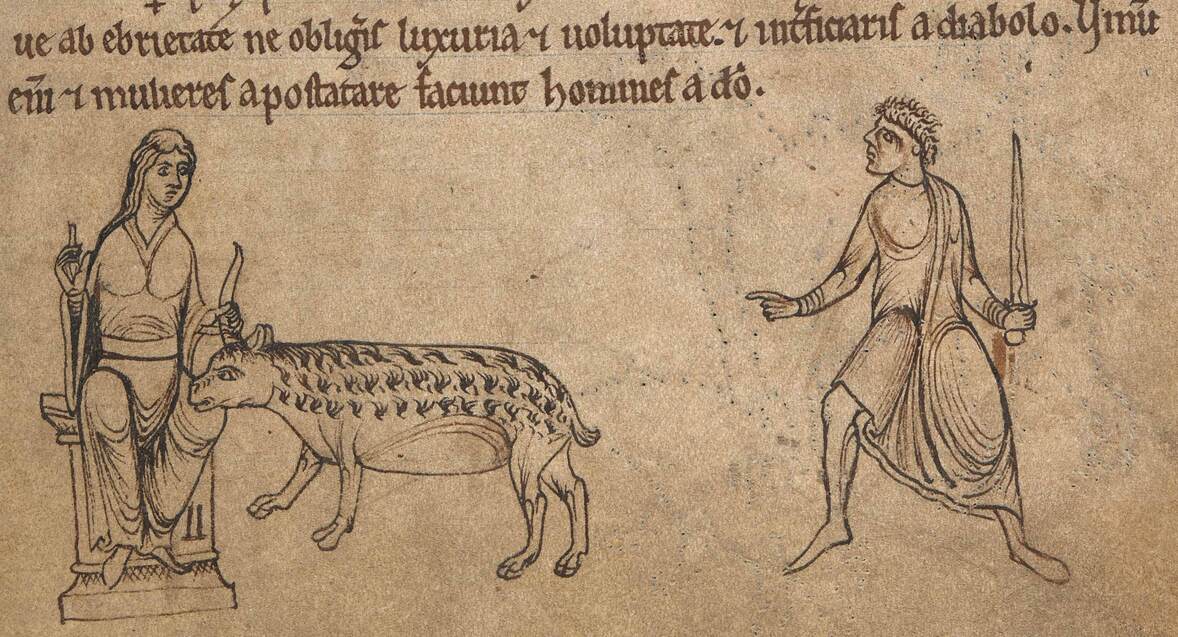 ue ab ebrietate ne obligẽſ luxuria ⁊ uoluptate. ⁊ int̃ficiariſ a diabolo. Vinũ
em̃ ⁊ muliereſ apoſtatare faciunt homineſ a dõ.